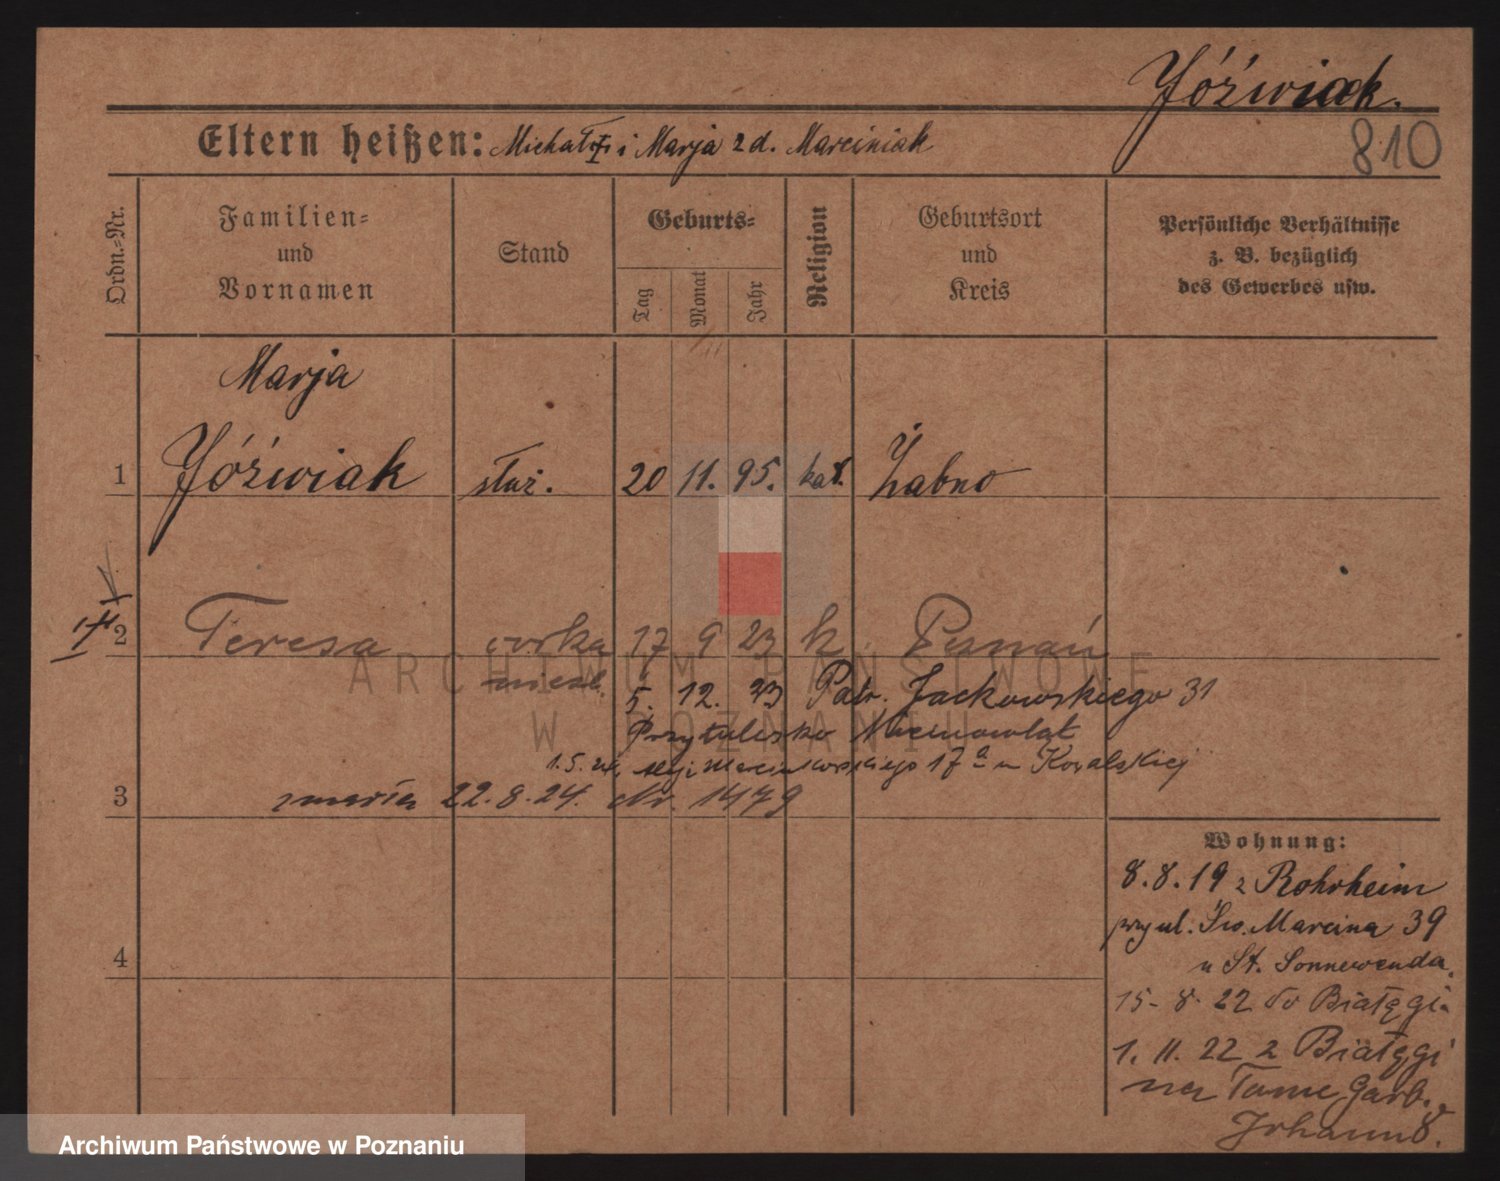 Jóźwiak.
810
Eltern heißen: Michał i Marja z d. Marciniak
Ordn.-Nr.
Familien-
und
Vornamen
Stand
Geburts-
Tag
Monat
Jahr
Religion
Geburtsort
und
Kreis
Persönliche Verhältnisse
z. B. bezüglich
des Gewerbes usw.
Marja
1 Jóźwiak służ. 20 11. 95. kat. Żabno
2 Teresa córka 17 9 23 k Poznań
5. 12. 23 Patr. Jackowskiego 31
Przytulisko
1. 5. 24 Marcinkowskiego 17 a u Kowalskiej
3 zmarła 22. 8. 24. Nr. 1479
4
Wohnung:
8. 8. 19 z Rohrheim
przy ul. Św. Marcina 39
u St. Sonnewenda.
15 - 8. 22 do Białęgi
1. 11. 22 z Białęgi
na Tame Garb.
8.
ARCHIWUM PAŃSTWOWE
W POZNANIU
Archiwum Państwowe w Poznaniu